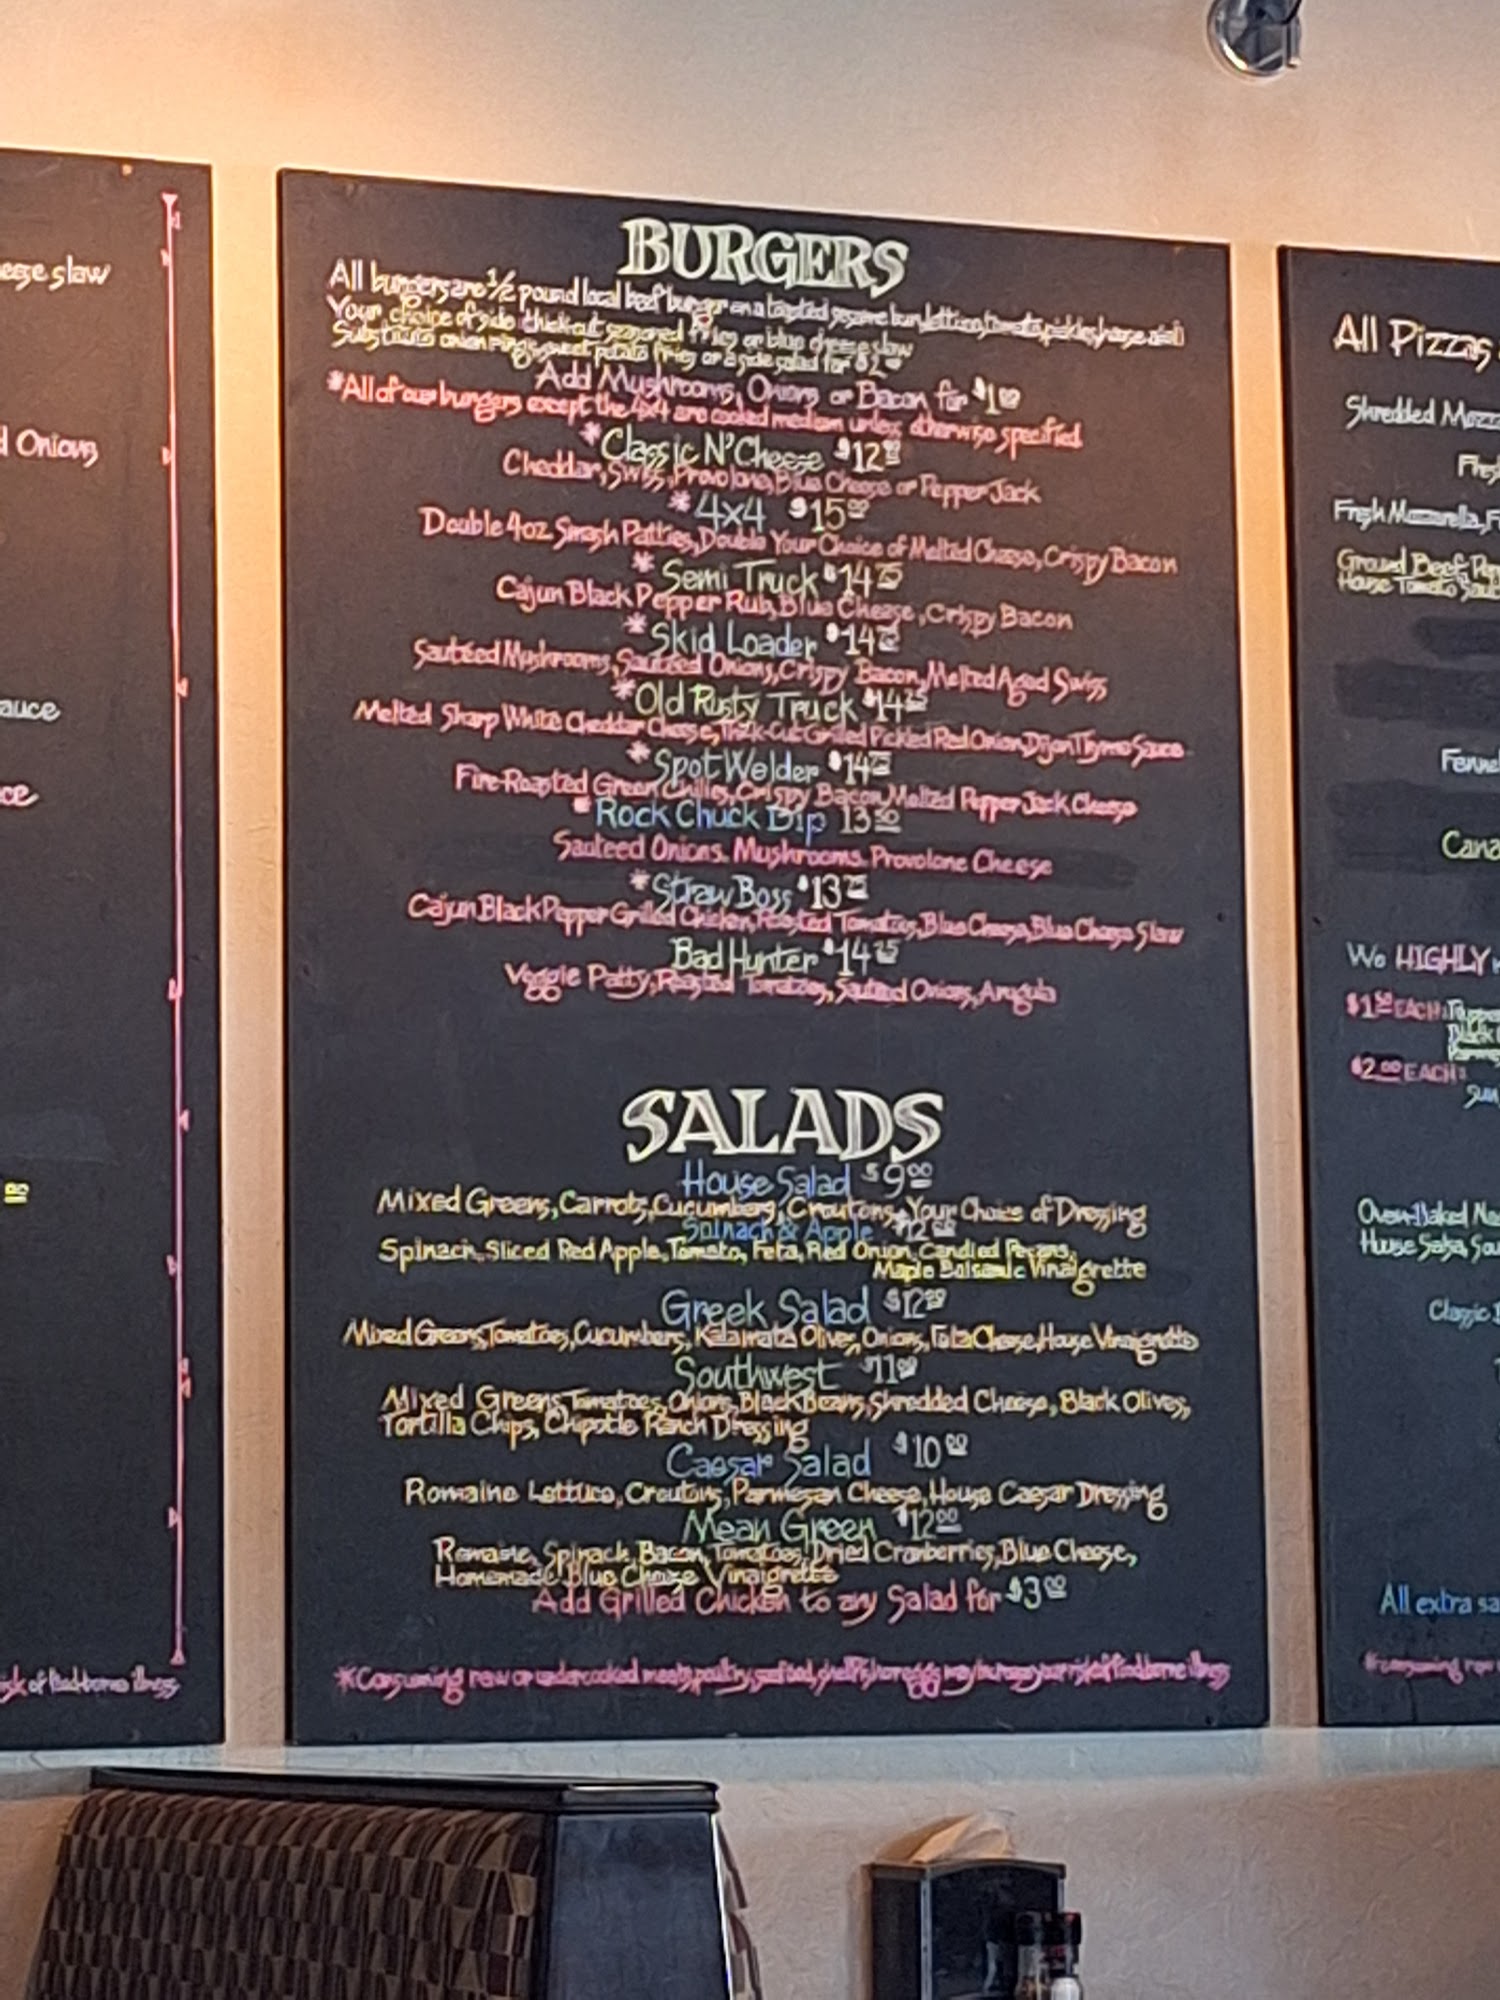 eese slaw
d Onions
auce
ce
risk of food-borne illness
BURGERS
All burgers are 1/2 pound local beef burger on a toasted sesame bun, lettuce, tomato, pickles, house aioli
Your choice of side thick-cut seasoned fries or blue cheese slaw
Substitute onion rings, sweet potato fries or a side salad for $2
Add Mushrooms, Onions or Bacon for $1 00
*All of our burgers except the 4x4 are cooked medium unless otherwise specified
*Classic N' Cheese $12
Cheddar, Swiss, Provolone, Blue Cheese or Pepper Jack
*4x4 $15 00
Double 4oz Smash Patties, Double Your Choice of Melted Cheese, Crispy Bacon
*Semi Truck $14 75
Cajun Black Pepper Rub, Blue Cheese, Crispy Bacon
*Skid Loader $14
Sautéed Mushrooms, Sautéed Onions, Crispy Bacon, Melted Aged Swiss
*Old Rusty Truck $14 25
Melted Sharp White Cheddar Cheese, Thick-Cut Grilled Pickled Red Onion, Dijon Thyme Sauce
*Spot Welder $14 75
Fire-Roasted Green Chilies, Crispy Bacon, Melted Pepper Jack Cheese
*Rock Chuck Dip 13 50
Sauteed Onions. Mushrooms. Provolone Cheese
*Straw Boss $13 75
Cajun Black Pepper Grilled Chicken, Roasted Tomatoes, Blue Cheese, Blue Cheese Slaw
Bad Hunter $14 25
Veggie Patty, Roasted Tomatoes, Sauteed Onions, Arugula
SALADS
House Salad $9 00
Mixed Greens, Carrots, Cucumbers, Croutons, Your Choice of Dressing
Spinach & Apple $12
Spinach, Sliced Red Apple, Tomato, Feta, Red Onion, Candied Pecans,
Maple Balsamic Vinaigrette
Greek Salad $12 00
Mixed Greens, Tomatoes, Cucumbers, Kalamata Olives, Onions, Feta Cheese, House Vinaigrette
Southwest $11 00
Mixed Greens, Tomatoes, Onions, Black Beans, Shredded Cheese, Black Olives,
Tortilla Chips, Chipotle Ranch Dressing
Caesar Salad $10 00
Romaine Lettuce, Croutons, Parmesan Cheese, House Caesar Dressing
Mean Green $12 00
Romaine, Spinach, Bacon, Tomatoes, Dried Cranberries, Blue Cheese,
Homemade Blue Cheese Vinaigrette
Add Grilled Chicken to any Salad for $3 00
*Consuming raw or undercooked meats, poultry, seafood, shellfish or eggs may increase your risk of food borne illness
All Pizzas
Shredded Mozz
Fres
Fresh Mozzarella, F
Ground Beef, Pep
House Tomato Sauc
Fennel
Cana
We HIGHLY
$1 50 EACH:
$2 00 EACH:
Sun
Oven-Baked Na
House Salsa, Sou
Classic
All extra sa
*consuming raw